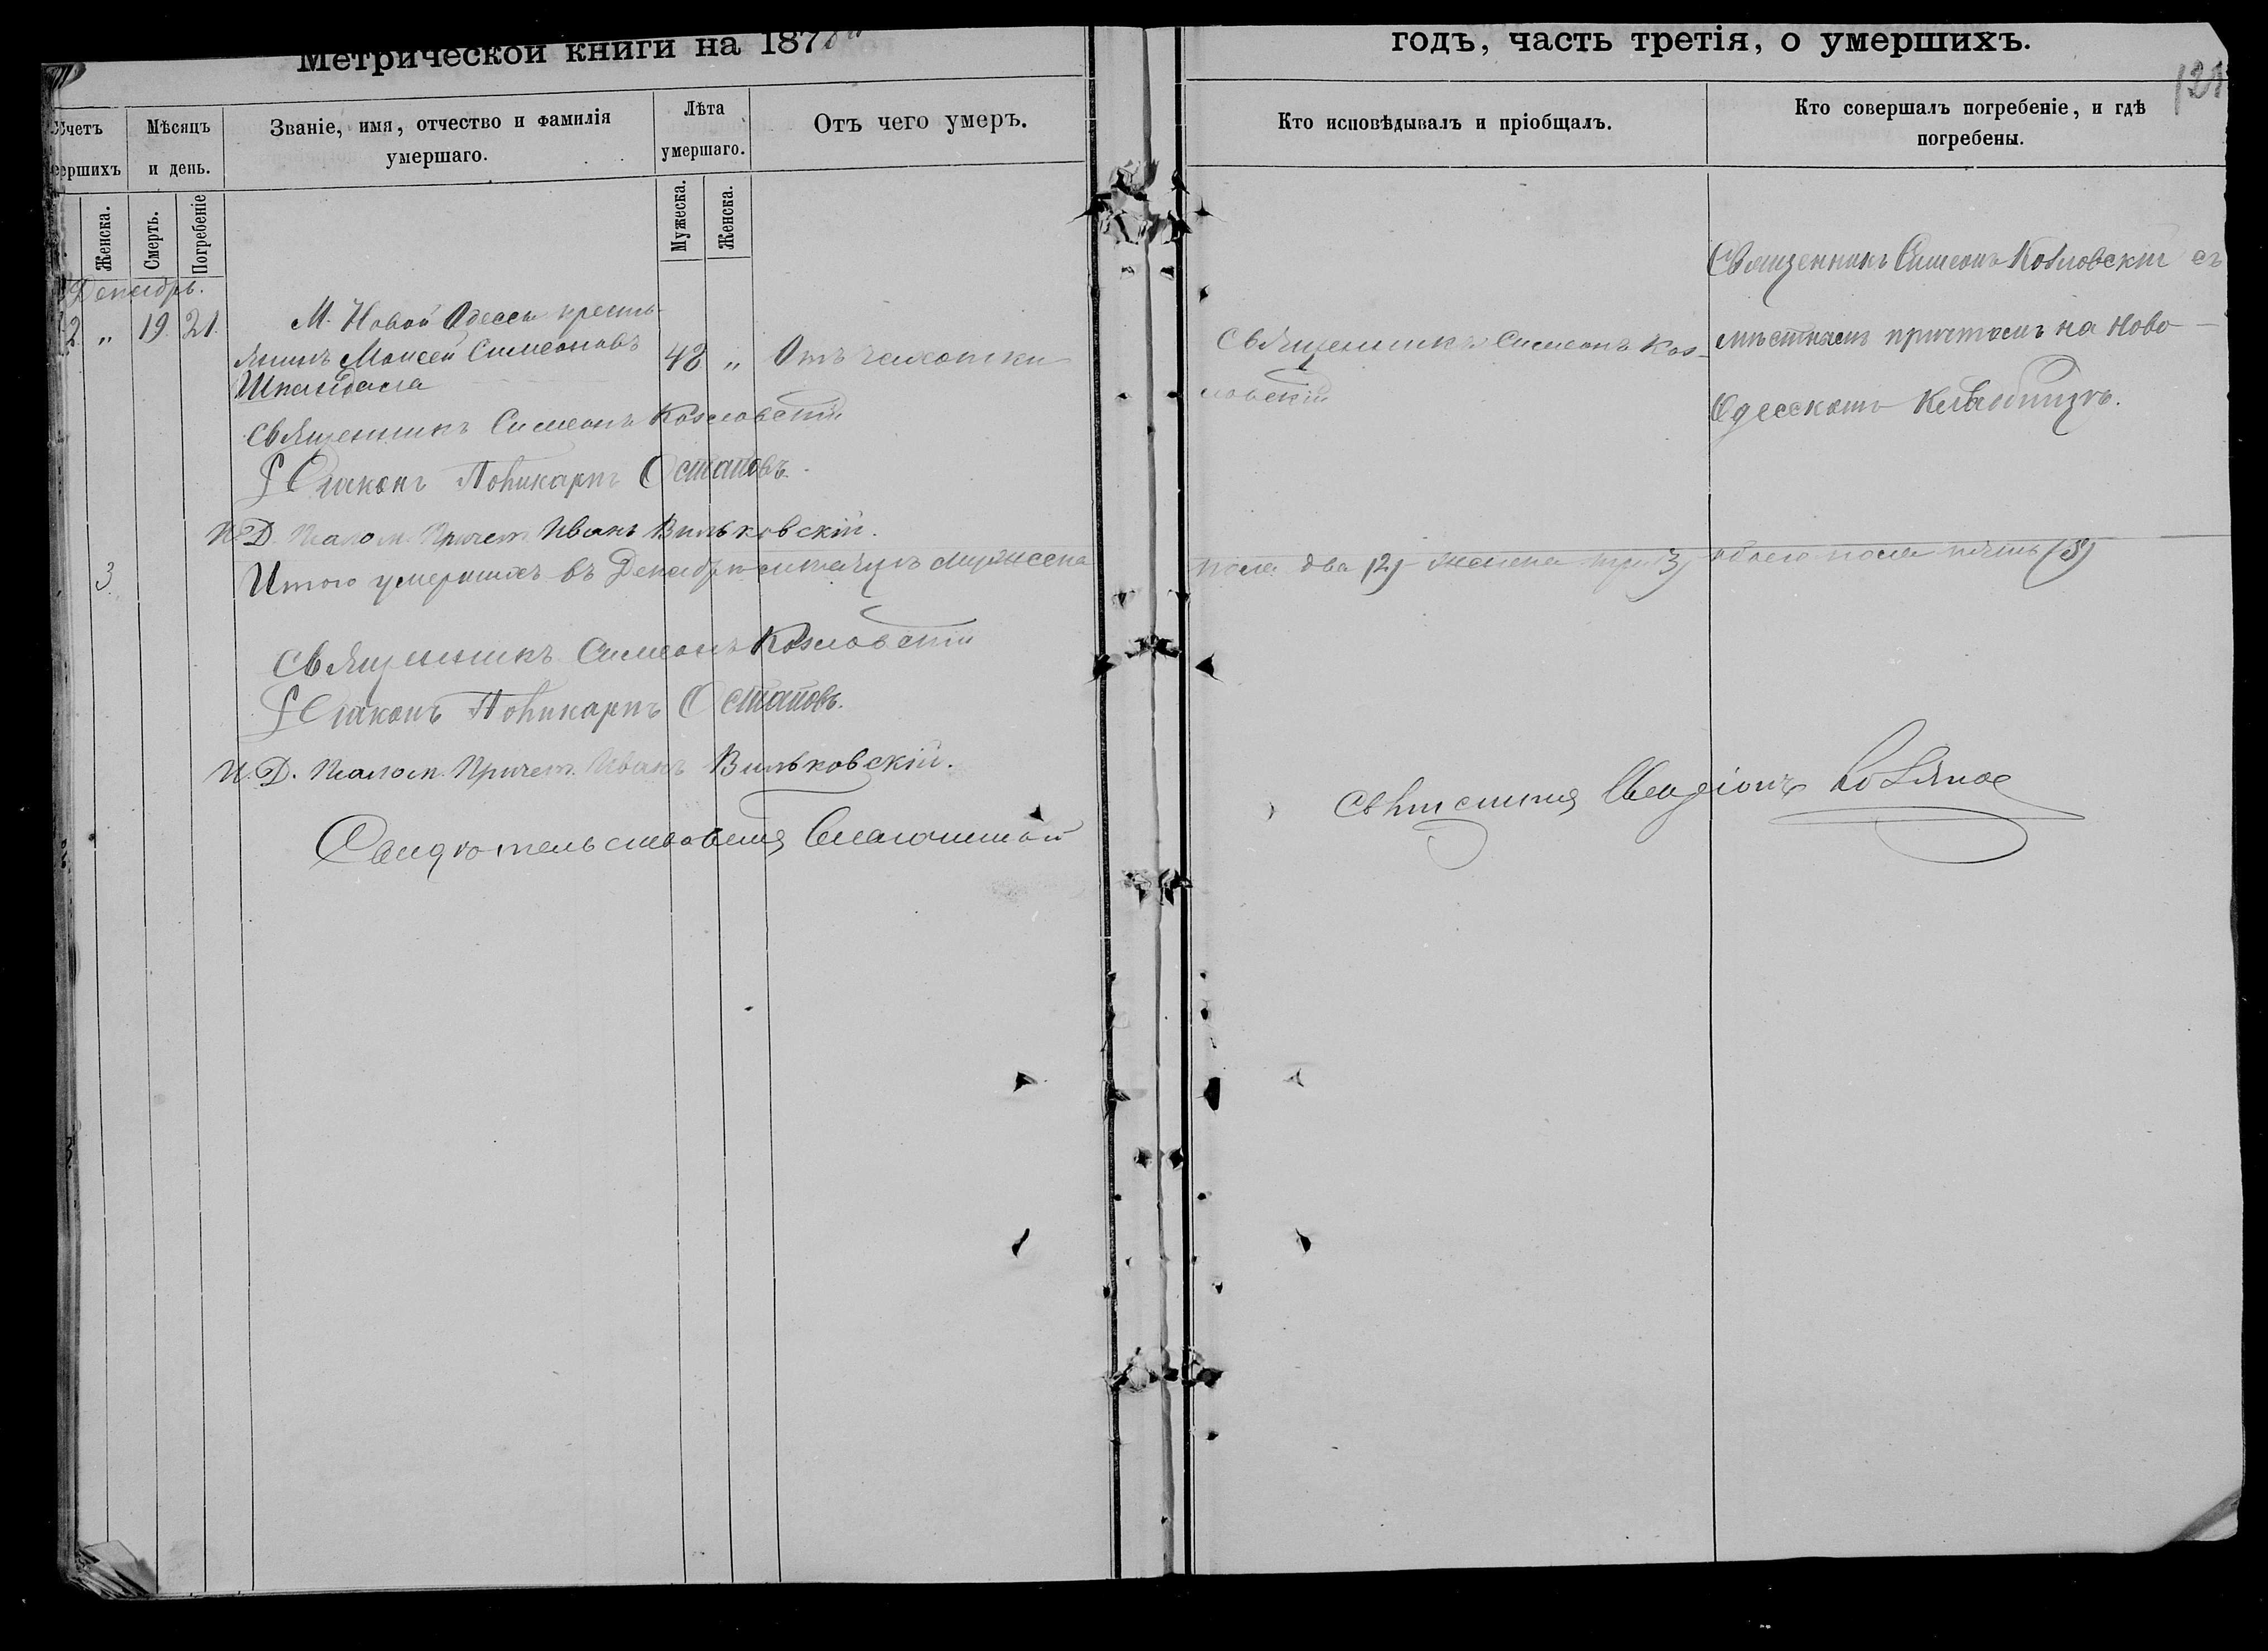 Метрической книги на 187
годъ, часть третія, о умершихъ.
Счетъ
умершихъ
Мѣсяцъ
и день.
Званіе, имя, отчество и фамилія
умершаго.
Лѣта
умершаго.
Отъ чего умеръ.
Кто исповѣдывалъ и пріобщалъ.
Кто совершалъ погребеніе, и гдѣ
погребены.
Женска.
Смерть.
Погребеніе
Мужеска.
Женска.
Декабрь.
2 „ 19. 21.
М. Новой Одессы кресть-
янинъ Моисей Симеоновъ
48 „ Отъ чахотки
Священникъ Симеонъ Коз-
ловскій
Священникъ Симеонъ Козловскій съ
мѣстнымъ причтомъ на Ново-
Одесскомъ Кладбищѣ.
Священникъ Симеонъ Козловскій
Діаконъ Поликарпъ Остаповъ.
И. Д. Псалом. Причет. Иванъ Вильковскій.
3 Итого умершихъ въ Декабрѣ мѣсяцѣ мужеска
пола два (2) женска три (3) обоего пола пять (5)
Священникъ Симеонъ Козловскій
Діаконъ Поликарпъ Остаповъ.
И. Д. Псалом. Причет. Иванъ Вильковскій.
Благочинный